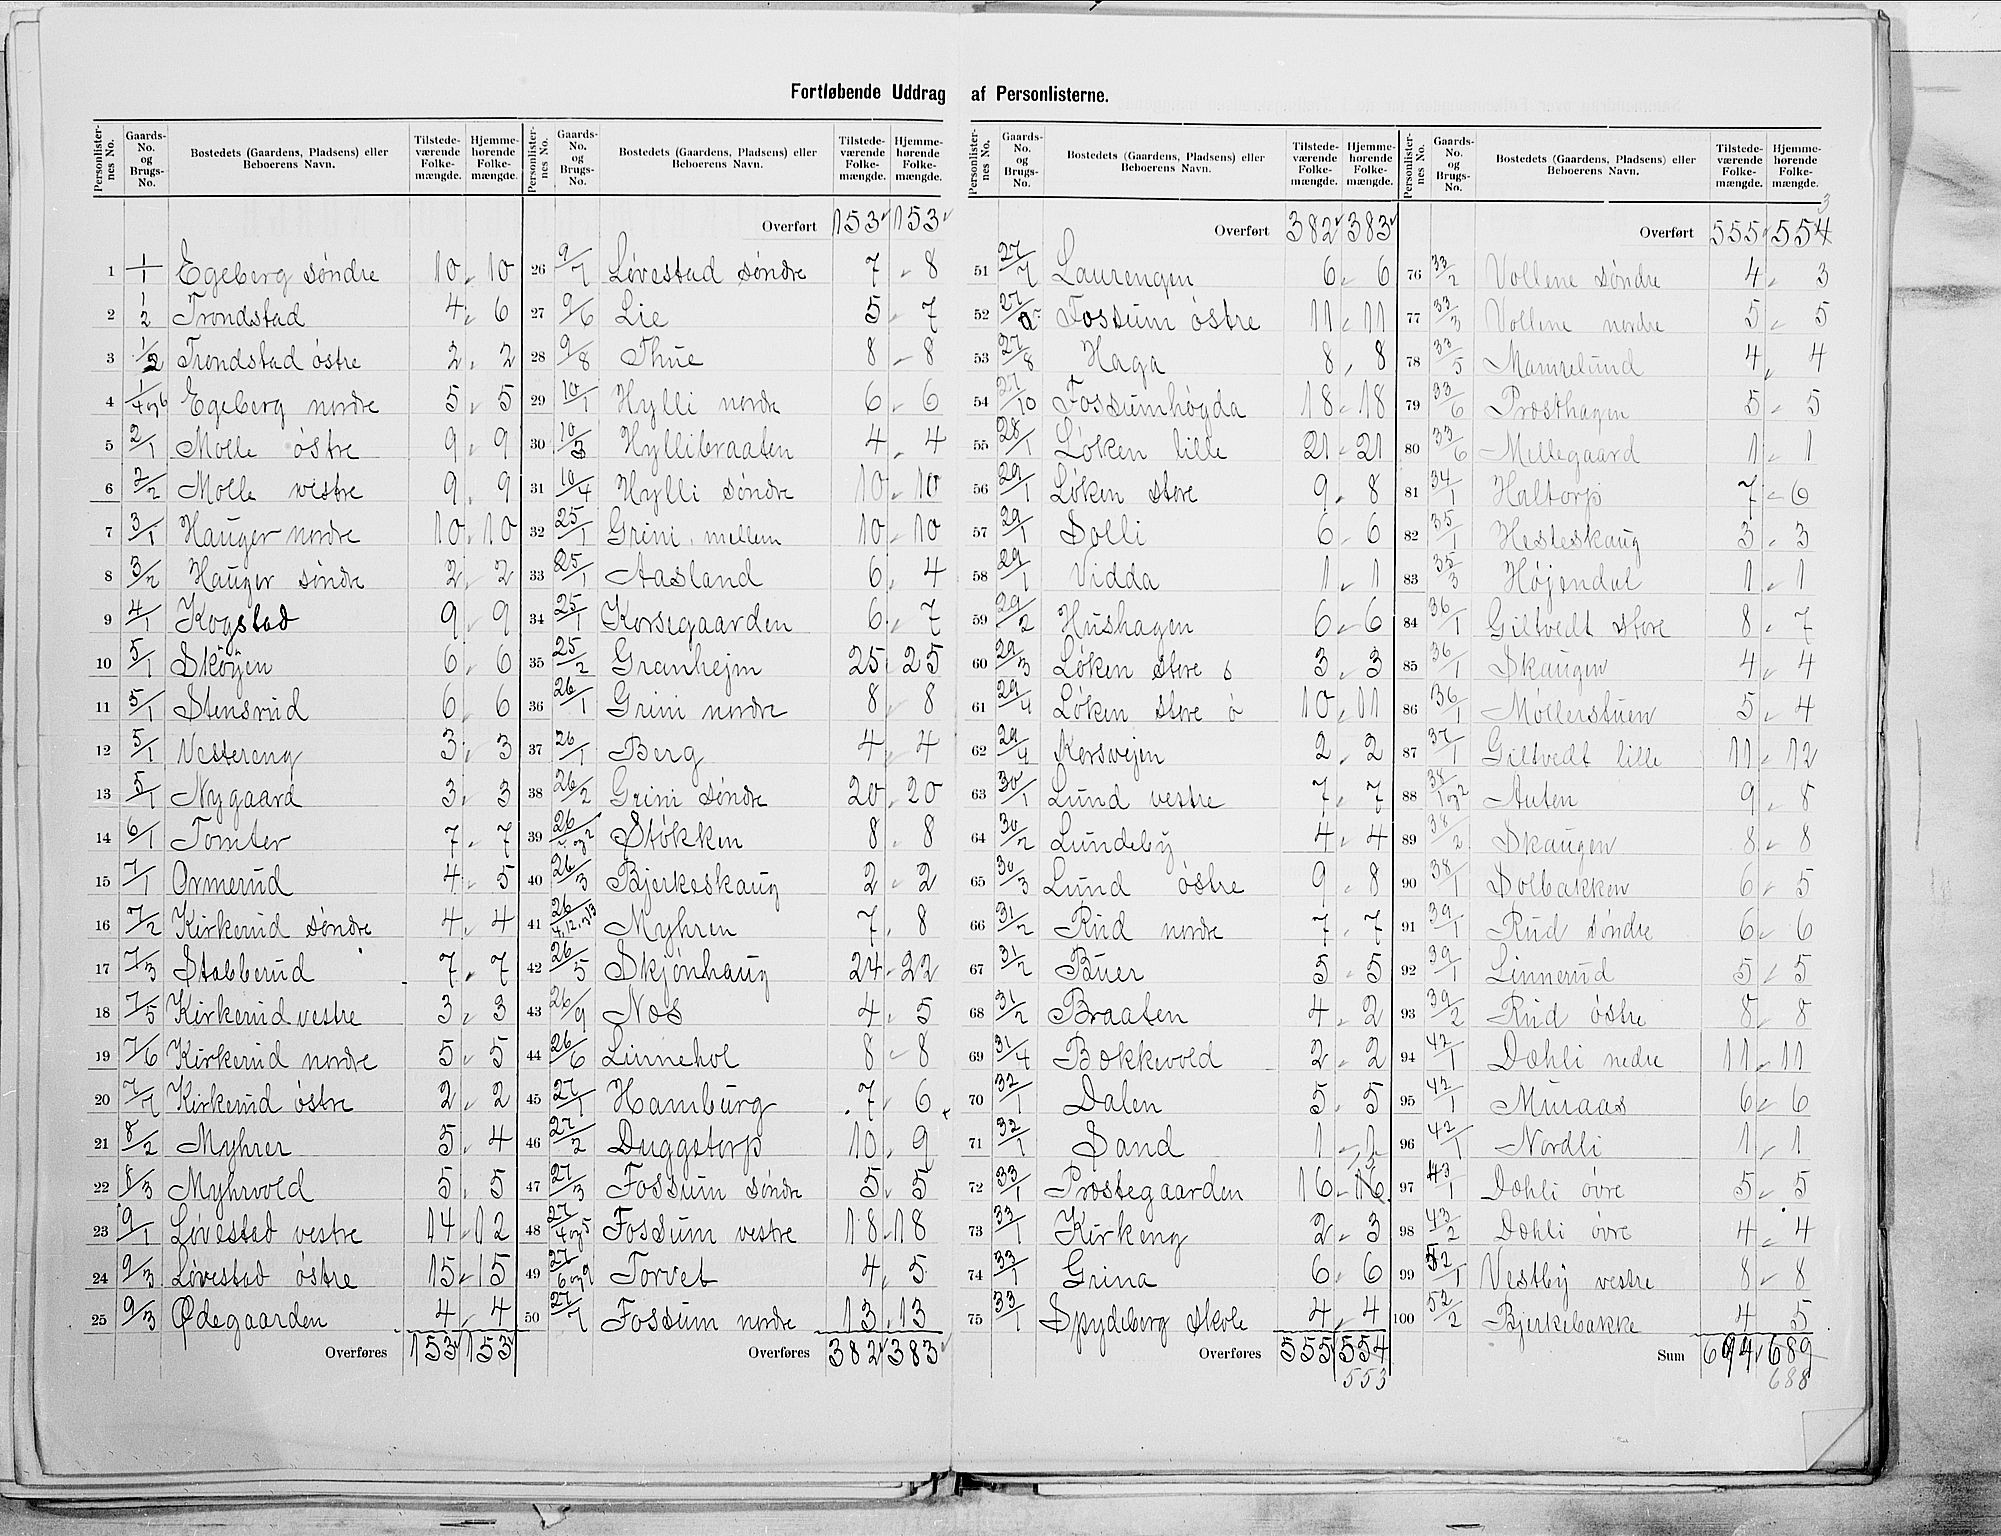 Fortløbende Uddrag af Personlisterne.
Personlisternes No. | Gaards-No. og Brugs-No. | Bostedets (Gaardens, Pladsens) eller Beboerens Navn. | Tilstedeværende Folkemængde. | Hjemmehørende Folkemængde.
1 1/1 Egeberg søndre 10 10
2 1/2 Trondstad 4 6
3 1/2 Trondstad østre 2 2
4 1/4 og 6 Egeberg nordre 5 5
5 2/1 Molle østre 9 9
6 2/2 Molle vestre 9 9
7 3/1 Hauger nordre 10 10
8 3/2 Hauger søndre 2 2
9 4/1 Kogstad 9 9
10 5/1 Skøyen 6 6
11 5/1 Stensrud 6 6
12 5/1 Vestereng 3 3
13 5/1 Nygaard 3 3
14 6/1 Tomter 7 7
15 7/1 Ormerud 4 5
16 7/2 Kirkerud søndre 4 4
17 7/3 Stabberud 7 7
18 7/5 Kirkerud vestre 3 3
19 7/6 Kirkerud nordre 5 5
20 7/7 Kirkerud østre 2 2
21 8/2 Myhrer 5 4
22 8/3 Myhrvold 5 5
23 9/1 Løvestad vestre 14 12
24 9/3 Løvestad østre 15 15
25 9/3 Ødegaarden 4 4
Overføres 153 153
Personlisternes No. | Gaards-No. og Brugs-No. | Bostedets (Gaardens, Pladsens) eller Beboerens Navn. | Tilstedeværende Folkemængde. | Hjemmehørende Folkemængde.
Overført 153 153
26 9/7 Løvestad søndre 7 8
27 9/6 Lie 5 7
28 9/8 Thue 8 8
29 10/1 Hylli nordre 6 6
30 10/3 Hyllibraaten 4 4
31 10/4 Hylli søndre 10 10
32 25/1 Grini mellem 10 10
33 25/1 Aasland 6 4
34 25/1 Korsegaarden 6 7
35 25/2 Granhejm 25 25
36 26/1 Grini nordre 8 8
37 26/1 Berg 4 4
38 26/2 Grini søndre 20 20
39 26/1 og 2 Støkken 8 8
40 26/3 Bjerkeskaug 2 2
41 26/4, 12, og 13 Myhren 7 8
42 26/5 Skjønhaug 24 22
43 26/9 Næs 4 5
44 26/6 Linnehol 8 8
45 27/1 Hamburg 7 6
46 27/2 Duggstorp 10 9
47 27/3 Fossum søndre 5 5
48 27/4 og 5 Fossum vestre 18 18
49 27/6 og 9 Torvet 4 5
50 27/7 Fossum nordre 13 13
Overføres 382 383
Personlisternes No. | Gaards-No. og Brugs-No. | Bostedets (Gaardens, Pladsens) eller Beboerens Navn. | Tilstedeværende Folkemængde. | Hjemmehørende Folkemængde.
Overført 382 383
51 27/7 Laurengen 6 6
52 27/ Fossum østre 11 11
53 27/8 Haga 8 8
54 27/10 Fossumhøgda 18 18
55 28/1 Løken lille 21 21
56 29/1 Løken store 9 8
57 29/1 Solli 6 6
58 29/1 Vidda 1 1
59 29/2 Hushagen 6 6
60 29/3 Løken store s 3 3
61 29/4 Løken store ø 10 11
62 29/4 Korsvejen 2 2
63 30/1 Lund vestre 7 7
64 30/2 Lundeby 4 4
65 30/3 Lund østre 9 8
66 31/2 Rud nordre 7 7
67 31/2 Buer 5 5
68 31/2 Braaten 4 2
69 31/4 Bækkevold 2 2
70 32/1 Dalen 5 5
71 32/1 Sand 1 1
72 33/1 Præstegaarden 16 16 15
73 33/1 Kirkeng 2 3
74 33/1 Grina 6 6
75 33/1 Spydeberg skole 4 4
Overføres 555 554
553
Personlisternes No. | Gaards-No. og Brugs-No. | Bostedets (Gaardens, Pladsens) eller Beboerens Navn. | Tilstedeværende Folkemængde. | Hjemmehørende Folkemængde.
3
Overført 555 554
76 33/2 Vollene søndre 4 3
77 33/3 Vollene nordre 5 5
78 33/5 Mamrelund 4 4
79 33/6 Præsthagen 5 5
80 33/6 Millegaard 1 1
81 34/1 Haltorp 7 6
82 35/1 Hesteskaug 3 3
83 35/3 Højendal 1 1
84 36/1 Giltvedt store 8 7
85 36/1 Skaugen 4 4
86 36/1 Møllerstuen 5 4
87 37/1 Giltvedt lille 11 12
88 38/1 og 2 Auten 9 8
89 38/2 Skaugen 8 8
90 38/1 Solbakken 6 5
91 39/1 Rud søndre 6 6
92 39/1 Linnerud 5 5
93 39/2 Rud østre 8 8
94 42/1 Dæhli nedre 11 11
95 42/1 Muraas 6 6
96 42/1 Nordli 1 1
97 43/1 Dæhli øvre 5 5
98 43/2 Dæhli øvre 4 4
99 52/1 Vestby vestre 8 8
100 52/2 Bjerkebakke 4 5
Sum 694 689
688